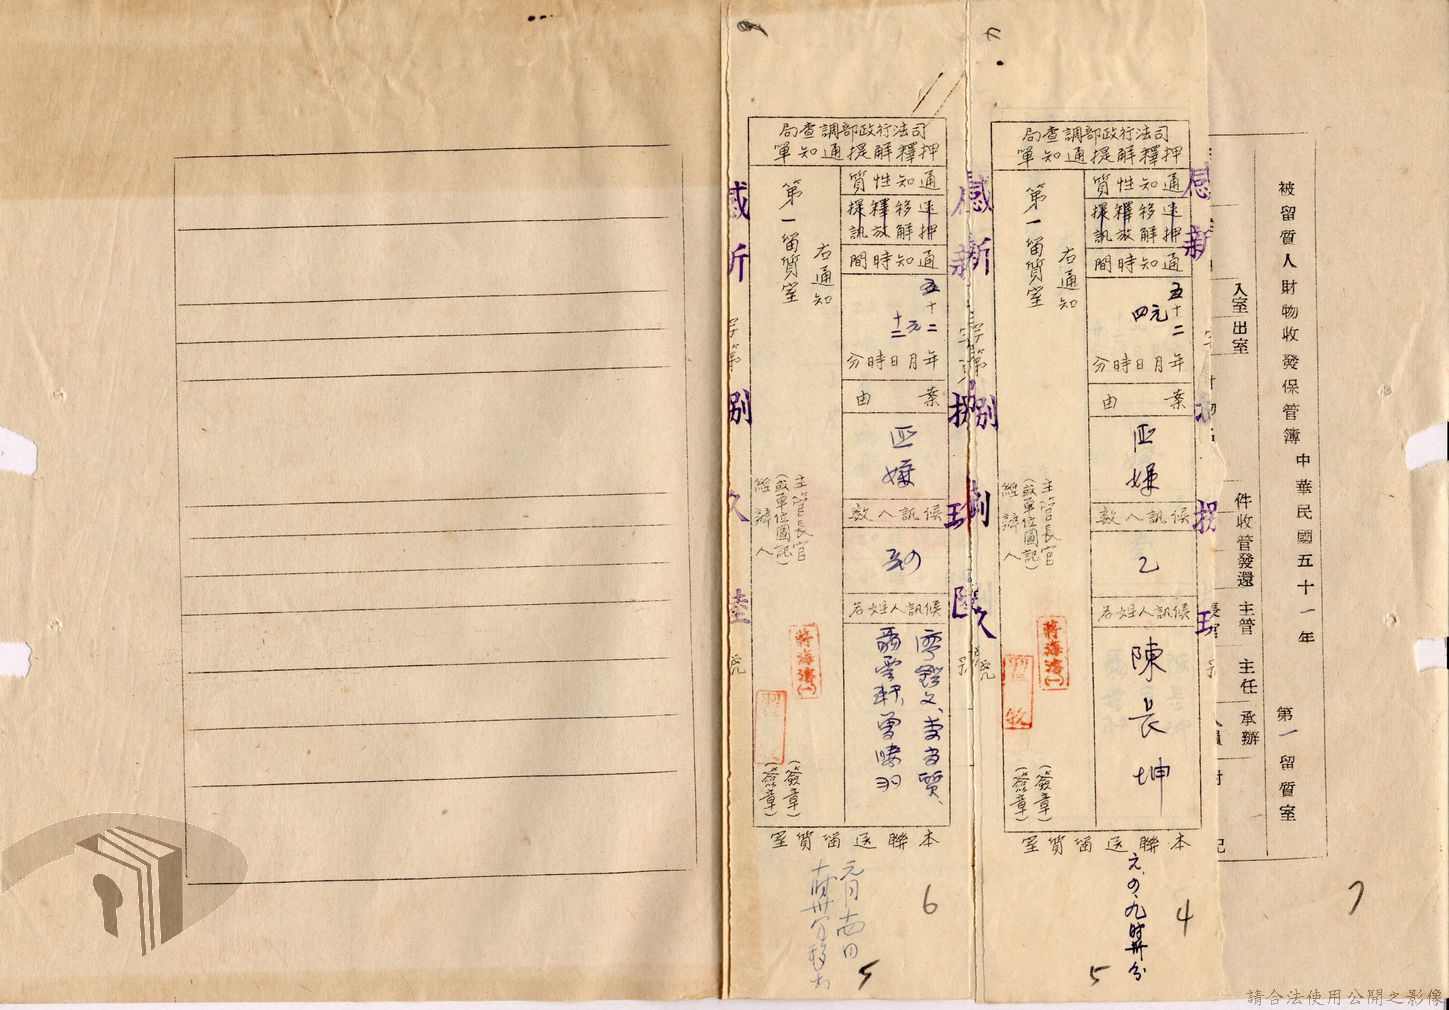 被留質人財物收發保管簿
中華民國五十一年
第一留質室
入室
出室
件收管發還
主管
主任
承辦
司法行政部調查局
押釋解提通知單
通知性質
還押
移解
釋放
提訊
通知時間
五十二
元
四
年月日時分
案由
匪嫌
候訊人數
乙
候訊人姓名
陳長坤
右通知
第一留質室
主管長官
(或單位圖記)
經辦人
蔣海濤(一)
(簽章)
(簽章)
本聯送留質室
元、四、九時卅分
4
5
司法行政部調查局
押釋解提通知單
通知性質
還押
移解
釋放
提訊
通知時間
五十二
元
十二
年月日時分
案由
匪嫌
候訊人數
候訊人姓名
右通知
第一留質室
主管長官
(或單位圖記)
經辦人
蔣海濤(一)
(簽章)
(簽章)
本聯送留質室
6
5
7
請合法使用公開之影像